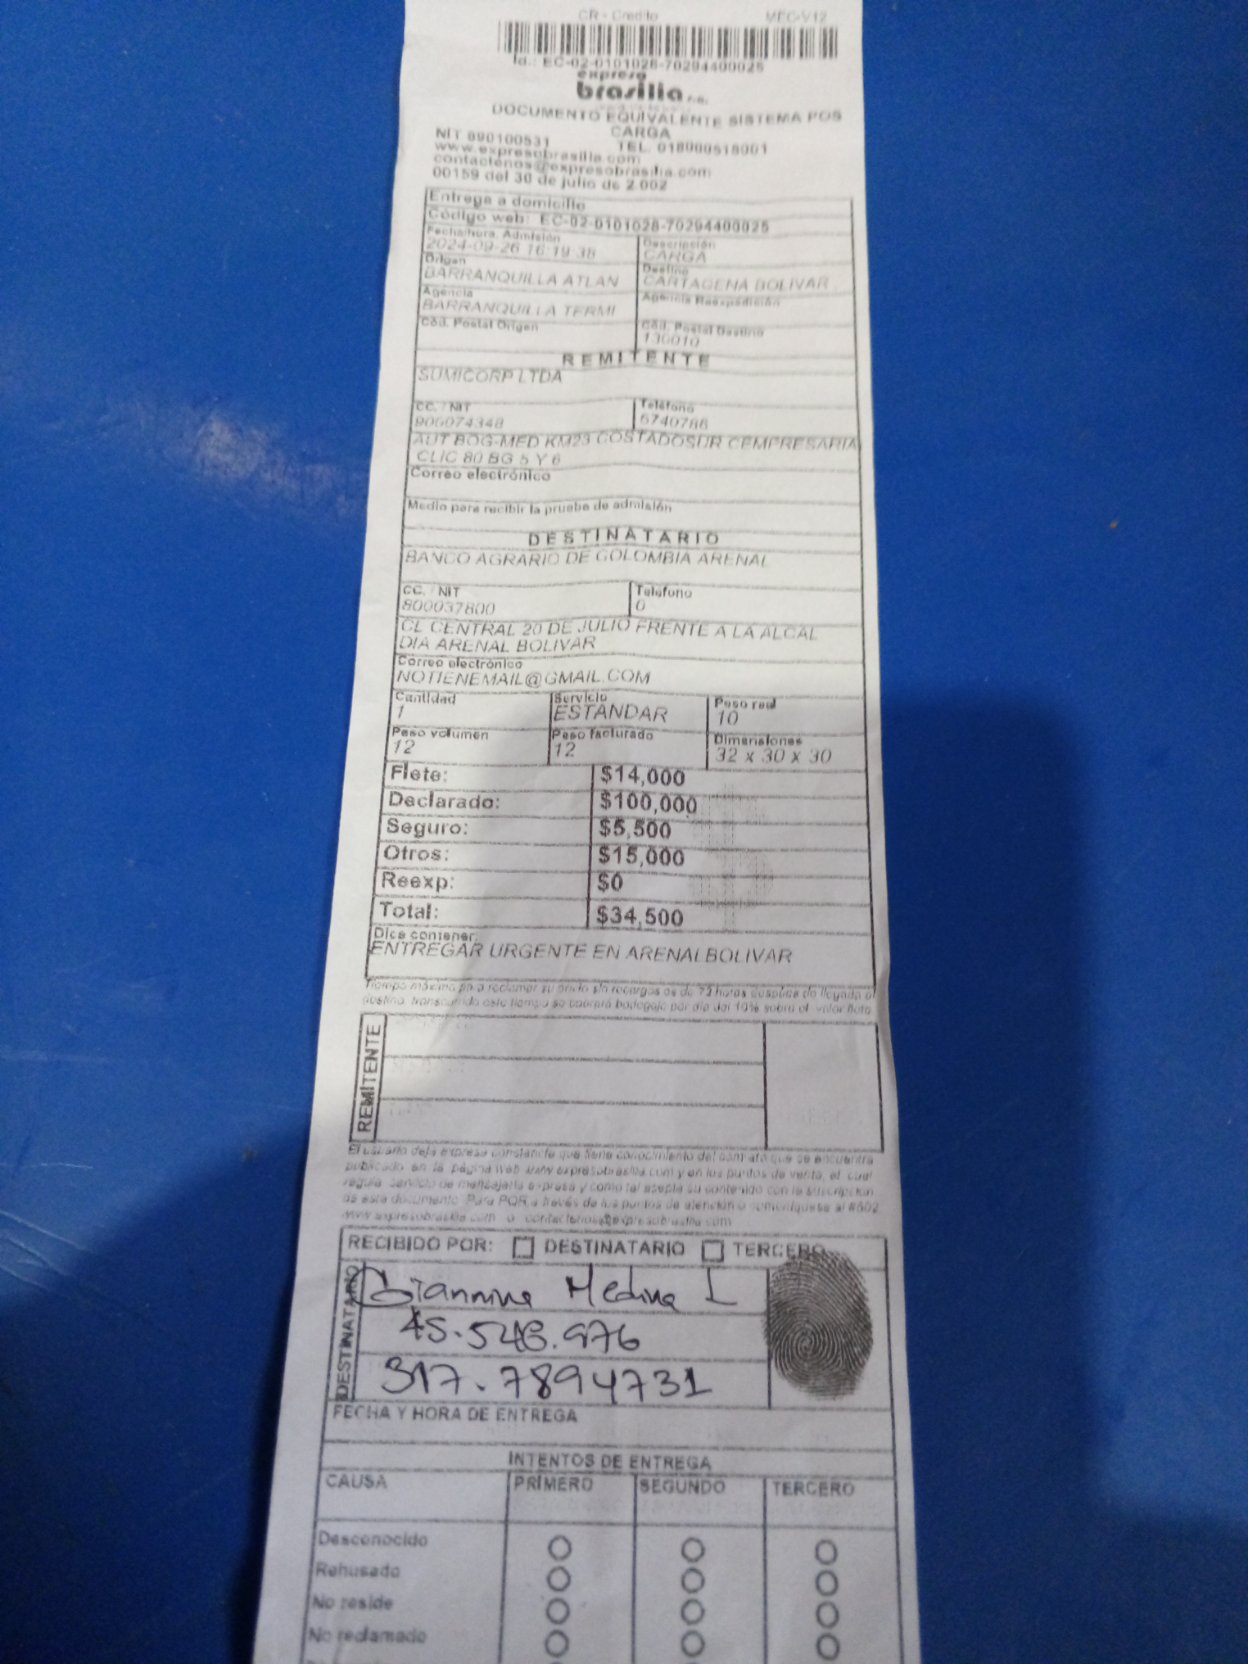 CR - Credito MEC-V12
Id.: EC-02-0101028-70294400025
expreso
brasilia s.a.
DOCUMENTO EQUIVALENTE SISTEMA POS
CARGA
NIT 890100531 TEL. 018000518001
www.expresobrasilia.com
contactenos@expresobrasilia.com
00159 del 30 de julio de 2.002
Entrega a domicilio
Código web: EC-02-0101028-70294400025
Fecha/hora. Admisión Descripción
2024-09-26 16:19:38 CARGA
Origen Destino
BARRANQUILLA ATLAN CARTAGENA BOLIVAR
Agencia Agencia Reexpedición
BARRANQUILLA TERMI
Cód. Postal Origen Cód. Postal Destino
130010
REMITENTE
SUMICORP LTDA
CC. / NIT Teléfono
900074348 6740786
AUT BOG-MED KM23 COSTADOSUR CEMPRESARIA
CLIC 80 BG 5 Y 6
Correo electrónico
Medio para recibir la prueba de admisión
DESTINATARIO
BANCO AGRARIO DE COLOMBIA ARENAL
CC. / NIT Teléfono
800037800 0
CL CENTRAL 20 DE JULIO FRENTE A LA ALCAL
DIA ARENAL BOLIVAR
Correo electrónico
NOTIENEMAIL@GMAIL.COM
Cantidad Servicio Peso real
1 ESTANDAR 10
Peso volumen Peso facturado Dimensiones
12 12 32 x 30 x 30
Flete: $14,000
Declarado: $100,000
Seguro: $5,500
Otros: $15,000
Reexp: $0
Total: $34,500
Dice contener:
ENTREGAR URGENTE EN ARENAL BOLIVAR
Tiempo máximo para reclamar su envío sin recargos es de 72 horas después de llegada a
destino, transcurrido este tiempo se cobrará bodegaje por día del 10% sobre el valor flete
REMITENTE
El usuario deja expresa constancia que tiene conocimiento del contrato que se encuentra
publicado en la página web www.expresobrasilia.com y en los puntos de venta, el cual
regula servicio de mensajería expresa y como tal acepta su contenido con la suscripción
de este documento. Para PQR a través de los puntos de atención o comuníquese al #602
www.expresobrasilia.com o contactenos@expresobrasilia.com
RECIBIDO POR: DESTINATARIO TERCERO
DESTINATARIO
Giannina Medina L
45.548.976
317.7894731
FECHA Y HORA DE ENTREGA
INTENTOS DE ENTREGA
CAUSA PRIMERO SEGUNDO TERCERO
Desconocido
Rehusado
No reside
No reclamado